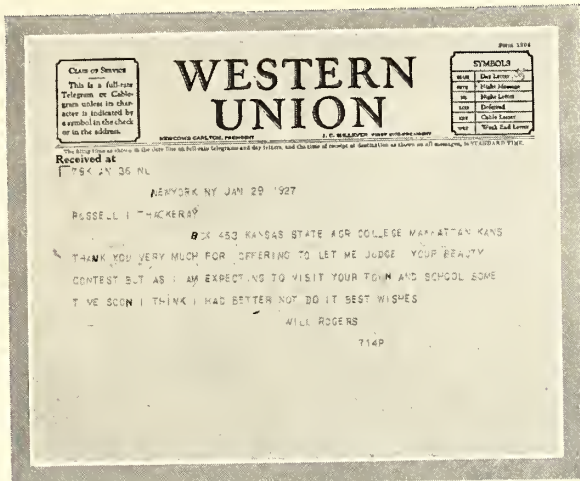 Form 1204
CLASS OF SERVICE
This is a full-rate
Telegram or Cable-
gram unless its char-
acter is indicated by
a symbol in the check
or in the address.
WESTERN
UNION
NEWCOMB CARLTON, PRESIDENT
J. C. WILLEVER, FIRST VICE-PRESIDENT
SYMBOLS
BLUE Day Letter
NITE Night Message
NL Night Letter
LCO Deferred
CLT Cable Letter
WLT Week End Letter
The filing time as shown in the date line on full-rate telegrams and day letters, and the time of receipt at destination as shown on all messages, is STANDARD TIME.
Received at
36 NL
NEWYORK NY JAN 29 1927
RUSSELL I THACKERAY
BOX 453 KANSAS STATE AGR COLLEGE MANHATTAN KANS
THANK YOU VERY MUCH FOR OFFERING TO LET ME JUDGE YOUR BEAUTY
CONTEST BUT AS I AM EXPECTING TO VISIT YOUR TOWN AND SCHOOL SOME
TIME SOON I THINK I HAD BETTER NOT DO IT BEST WISHES
WILL ROGERS
714P